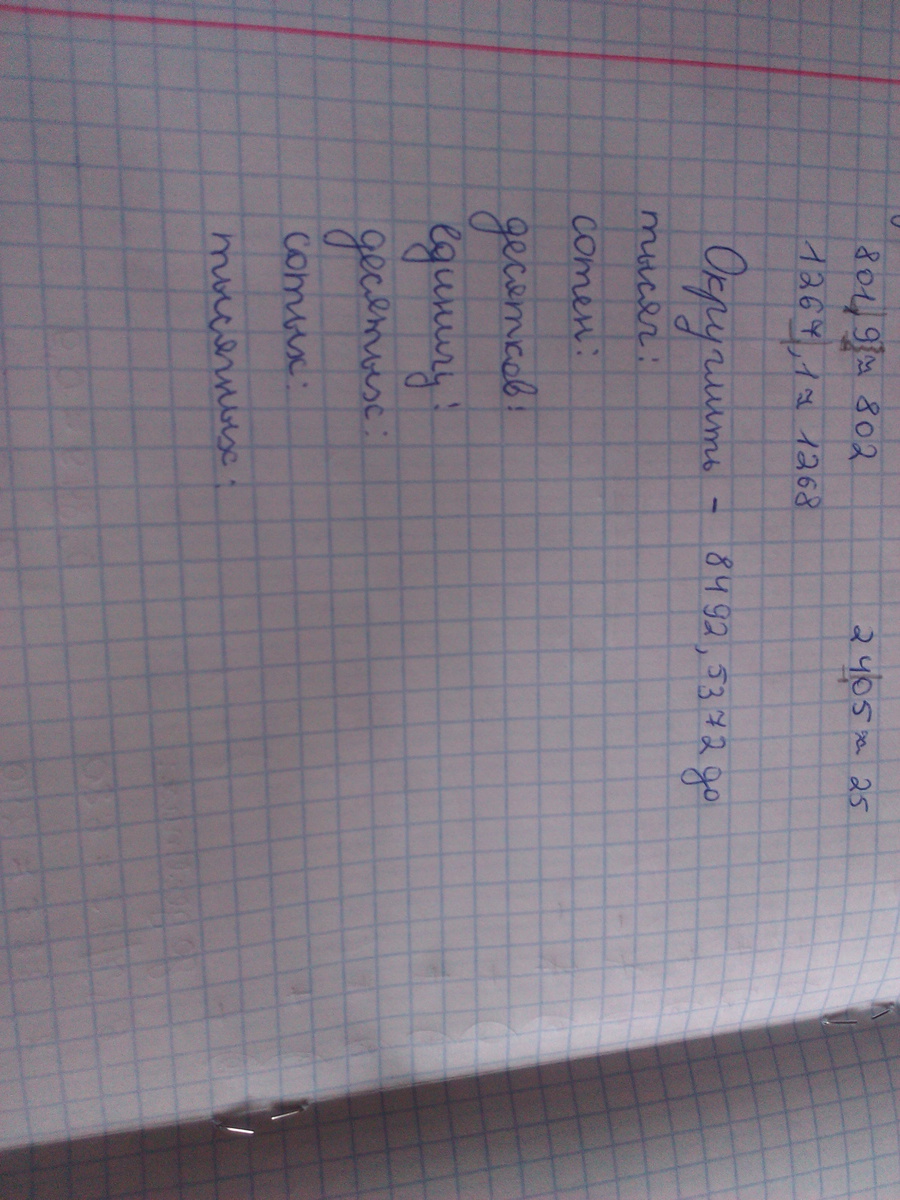 801,93 ≈ 802 2405 ≈ 25
1267,1 ≈ 1268
Округлить - 8492,5372 до
тысяч:
сотен:
десятков:
единиц:
десятых:
сотых:
тысячных: